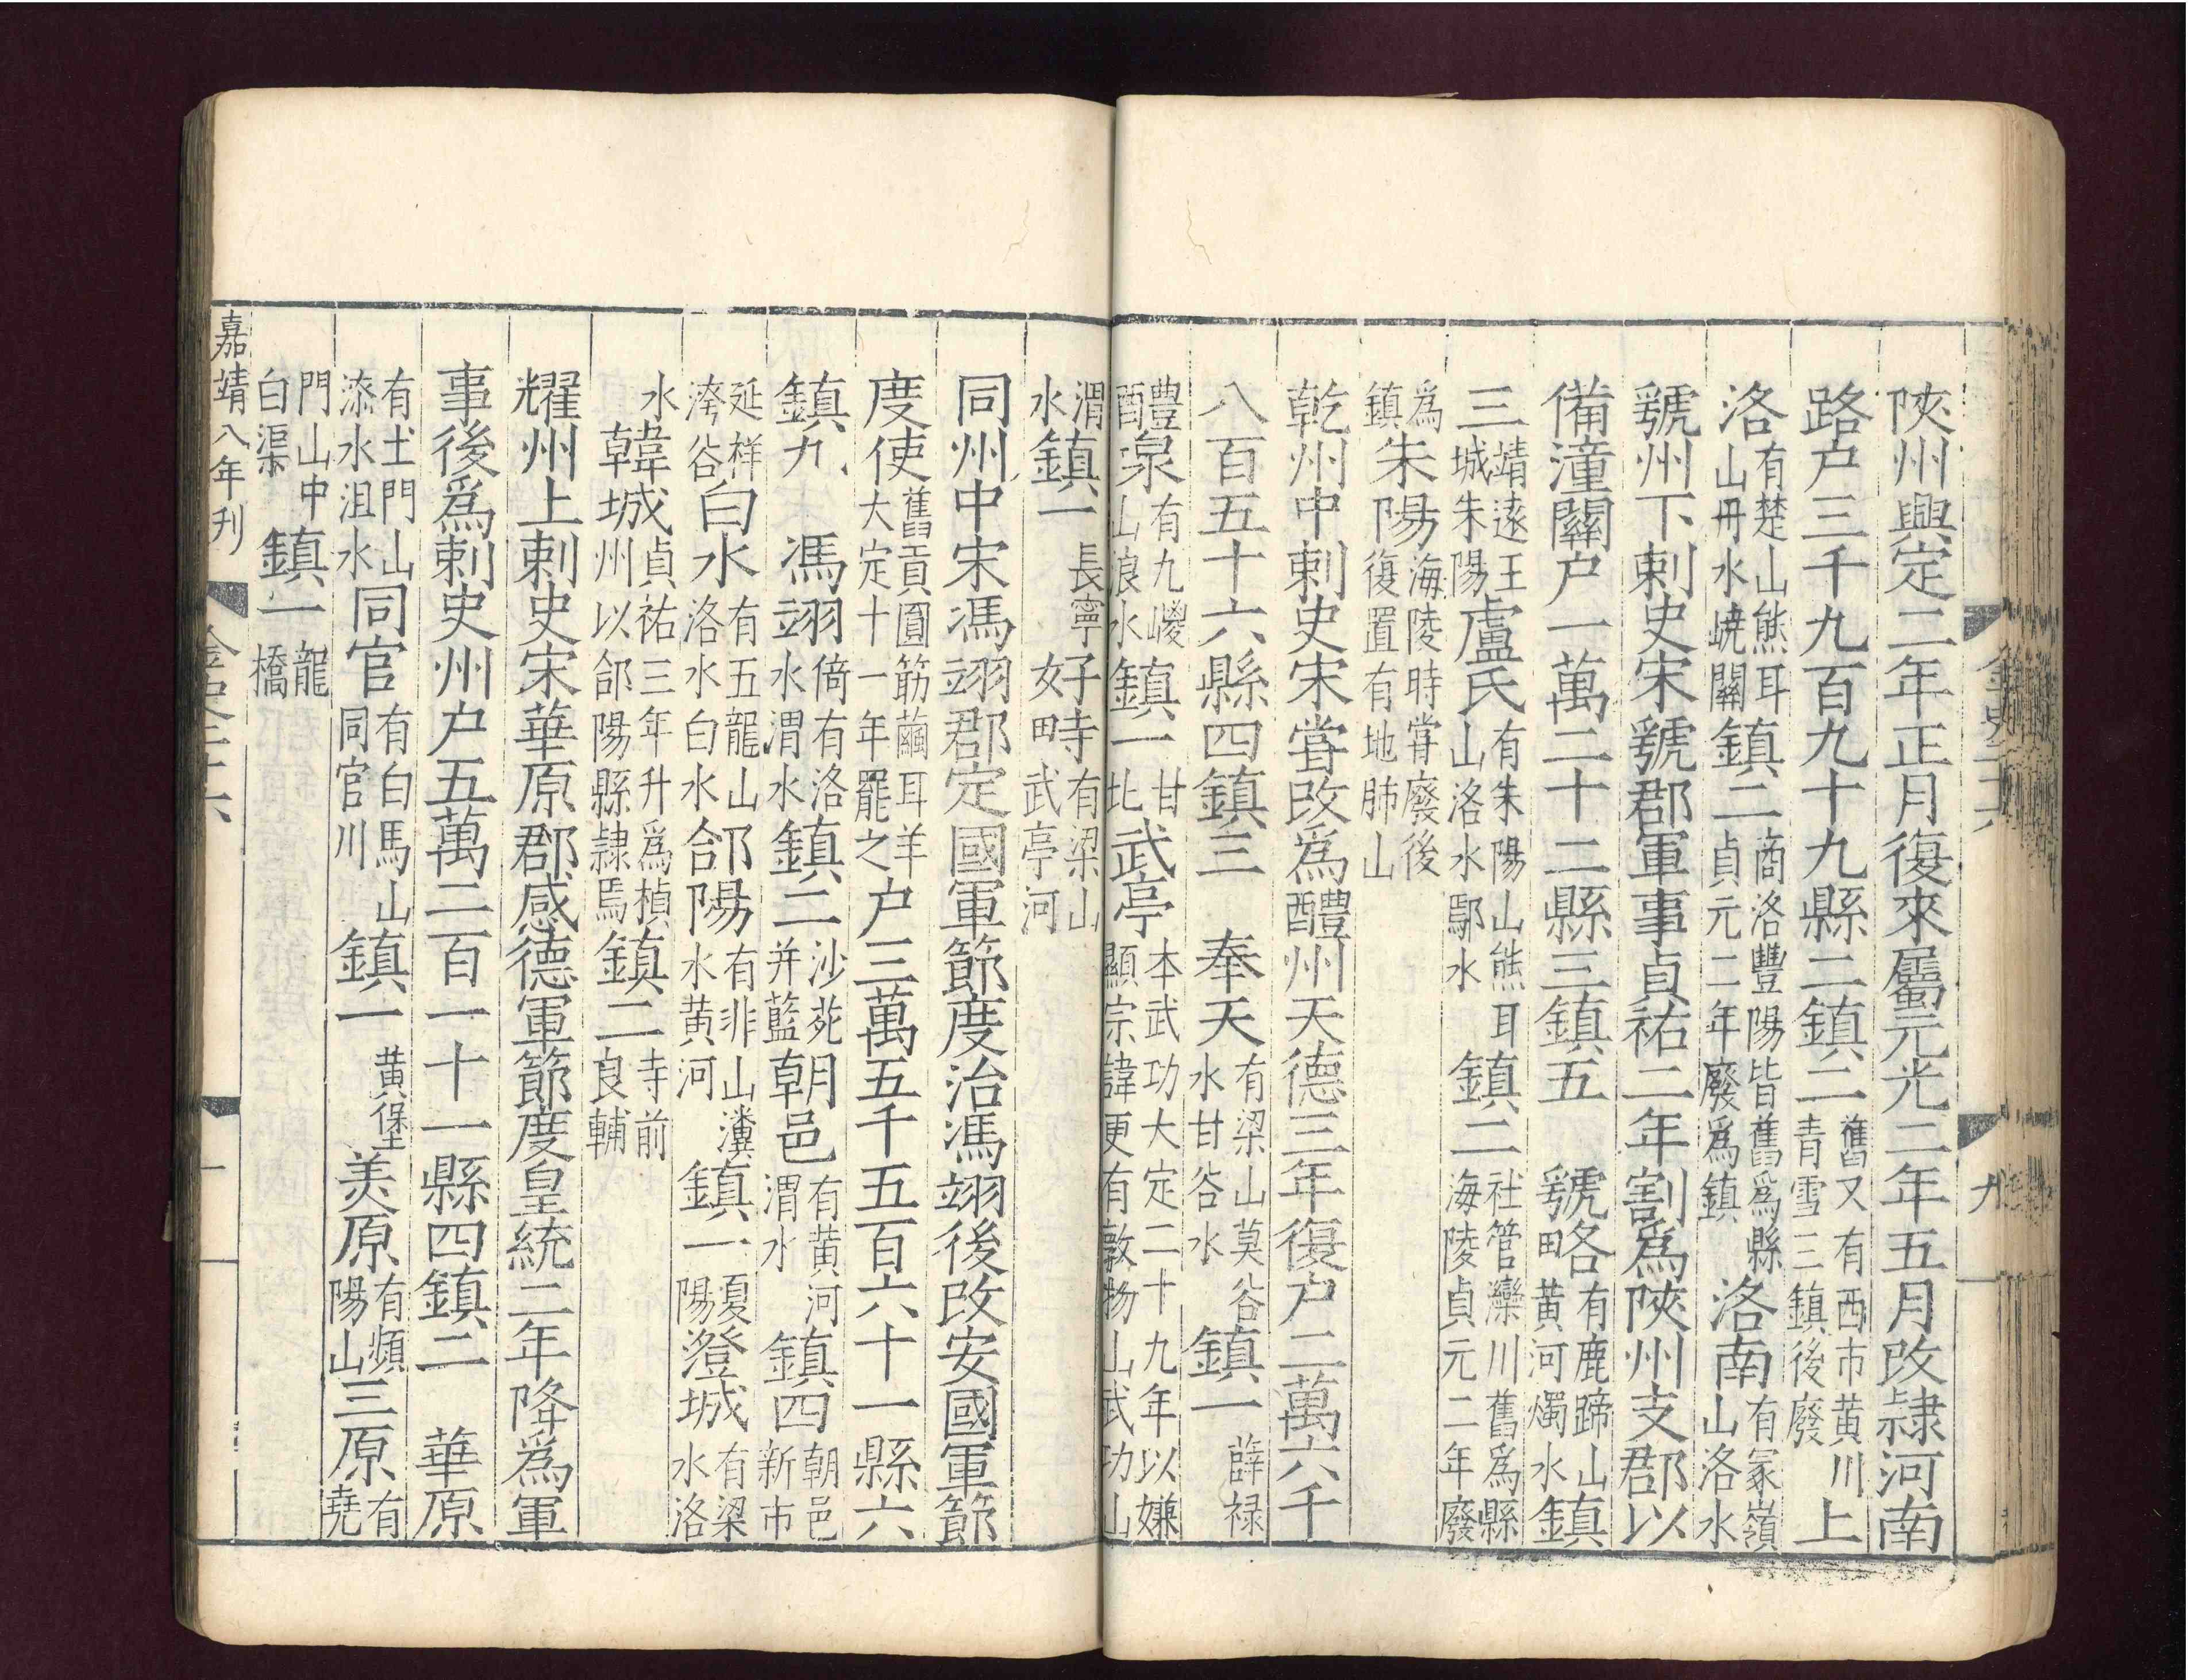 金史二十六 九
陝州興定二年正月復來屬元光二年五月改隸河南
路户三千九百九十九縣二鎮二舊又有西市黄川青雪三鎮後廢上
洛有楚山熊耳山丹水嶢關鎮二商洛豐陽皆舊爲縣貞元二年廢爲鎮洛南有冢嶺山洛水
虢州下刺史宋虢郡軍事貞祐二年割爲陝州支郡以
備潼關户一萬二十二縣三鎮五　虢略有鹿蹄山黄河燭水鎮
三靖遠王城朱陽盧氏有朱陽山熊耳山洛水鄢水鎮二社管欒川舊爲縣海陵貞元二年廢
爲鎮朱陽海陵時嘗廢後復置有地肺山
乾州中刺史宋嘗改爲醴州天德三年復户二萬六千
八百五十六縣四鎮三　奉天有梁山莫谷水甘谷水鎮一薛禄
醴泉有九嵕山浪水鎮一甘北武亭本武功大定二十九年以嫌顯宗諱更有敦物山武功山
渭水鎮一長寧好畤有梁山武亭河
同州中宋馮翊郡定國軍節度治馮翊後改安國軍節
度使舊貢圓筋繭耳羊大定十一年罷之户三萬五千五百六十一縣六
鎮九　馮翊倚有洛水渭水鎮二沙苑并藍朝邑有黄河渭水鎮四朝邑新市
延祥洿谷白水有五龍山洛水白水郃陽有非山瀵水黄河鎮一夏陽澄城有梁水洛
水韓城貞祐三年升爲楨州以郃陽縣隸焉鎮二寺前良輔
耀州上刺史宋華原郡感德軍節度皇統二年降爲軍
事後爲刺史州户五萬二百一十一縣四鎮二　華原
有土門山漆水沮水同官有白馬山同官川鎮一黄堡美原有頻陽山三原有堯
門山中白渠鎮一龍橋
嘉靖八年刊 金史二十六